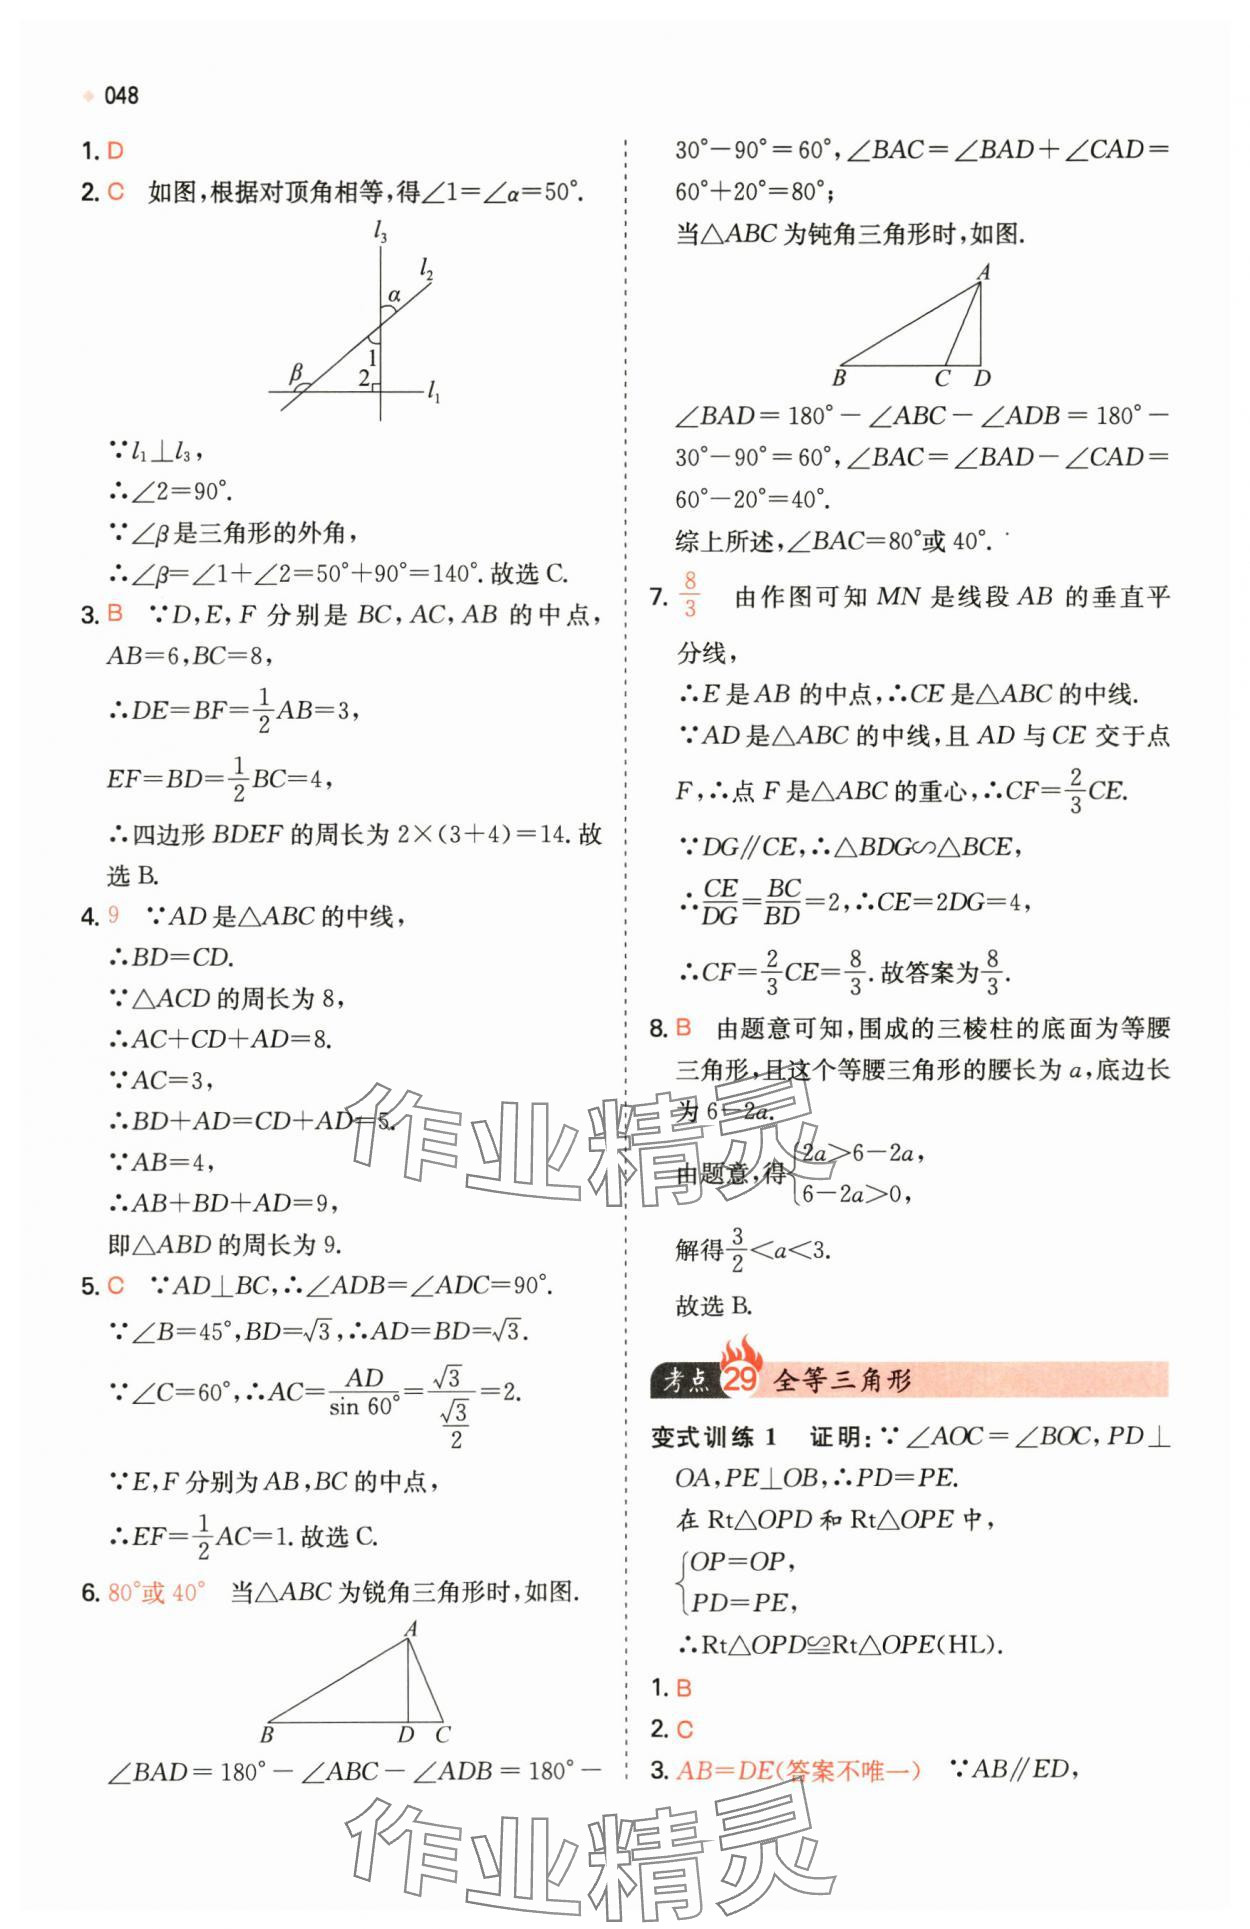 048
1. D
2. C 如图,根据对顶角相等,得∠1=∠α=50°.
l₃
l₂
α
1
β
2
l₁
∵l₁⊥l₃,
∴∠2=90°.
∵∠β是三角形的外角,
∴∠β=∠1+∠2=50°+90°=140°.故选C.
3. B ∵D,E,F 分别是 BC,AC,AB 的中点,
AB=6,BC=8,
∴DE=BF=1/2AB=3,
EF=BD=1/2BC=4,
∴四边形 BDEF 的周长为 2×(3+4)=14.故
选 B.
4. 9 ∵AD 是△ABC 的中线,
∴BD=CD.
∵△ACD 的周长为 8,
∴AC+CD+AD=8.
∵AC=3,
∴BD+AD=CD+AD=5.
∵AB=4,
∴AB+BD+AD=9,
即△ABD 的周长为 9.
5. C ∵AD⊥BC,∴∠ADB=∠ADC=90°.
∵∠B=45°,BD=√3,∴AD=BD=√3.
∵∠C=60°,∴AC=AD/sin 60°=√3/(√3/2)=2.
∵E,F 分别为 AB,BC 的中点,
∴EF=1/2AC=1.故选 C.
6. 80°或 40° 当△ABC 为锐角三角形时,如图.
A
B D C
∠BAD=180°-∠ABC-∠ADB=180°-
30°-90°=60°,∠BAC=∠BAD+∠CAD=
60°+20°=80°;
当△ABC 为钝角三角形时,如图.
A
B C D
∠BAD=180°-∠ABC-∠ADB=180°-
30°-90°=60°,∠BAC=∠BAD-∠CAD=
60°-20°=40°.
综上所述,∠BAC=80°或 40°.
7. 8/3 由作图可知 MN 是线段 AB 的垂直平
分线,
∴E 是 AB 的中点,∴CE 是△ABC 的中线.
∵AD 是△ABC 的中线,且 AD 与 CE 交于点
F,∴点 F 是△ABC 的重心,∴CF=2/3CE.
∵DG∥CE,∴△BDG∽△BCE,
∴CE/DG=BC/BD=2,∴CE=2DG=4,
∴CF=2/3CE=8/3.故答案为8/3.
8. B 由题意可知,围成的三棱柱的底面为等腰
三角形,且这个等腰三角形的腰长为 a,底边长
为 6-2a.
由题意,得{2a>6-2a,
6-2a>0,
解得3/2<a<3.
故选 B.
考点 29 全等三角形
变式训练 1 证明:∵∠AOC=∠BOC,PD⊥
OA,PE⊥OB,∴PD=PE.
在 Rt△OPD 和 Rt△OPE 中,
{OP=OP,
PD=PE,
∴Rt△OPD≌Rt△OPE(HL).
1. B
2. C
3. AB=DE(答案不唯一) ∵AB∥ED,
作业精灵
作业精灵